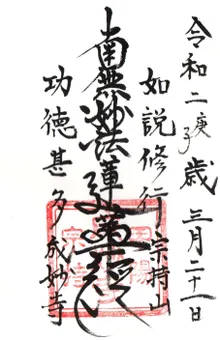 令和二庚子歳三月二十一日
如説修行 宗持山
南無妙法蓮華経
功徳甚多 成妙寺